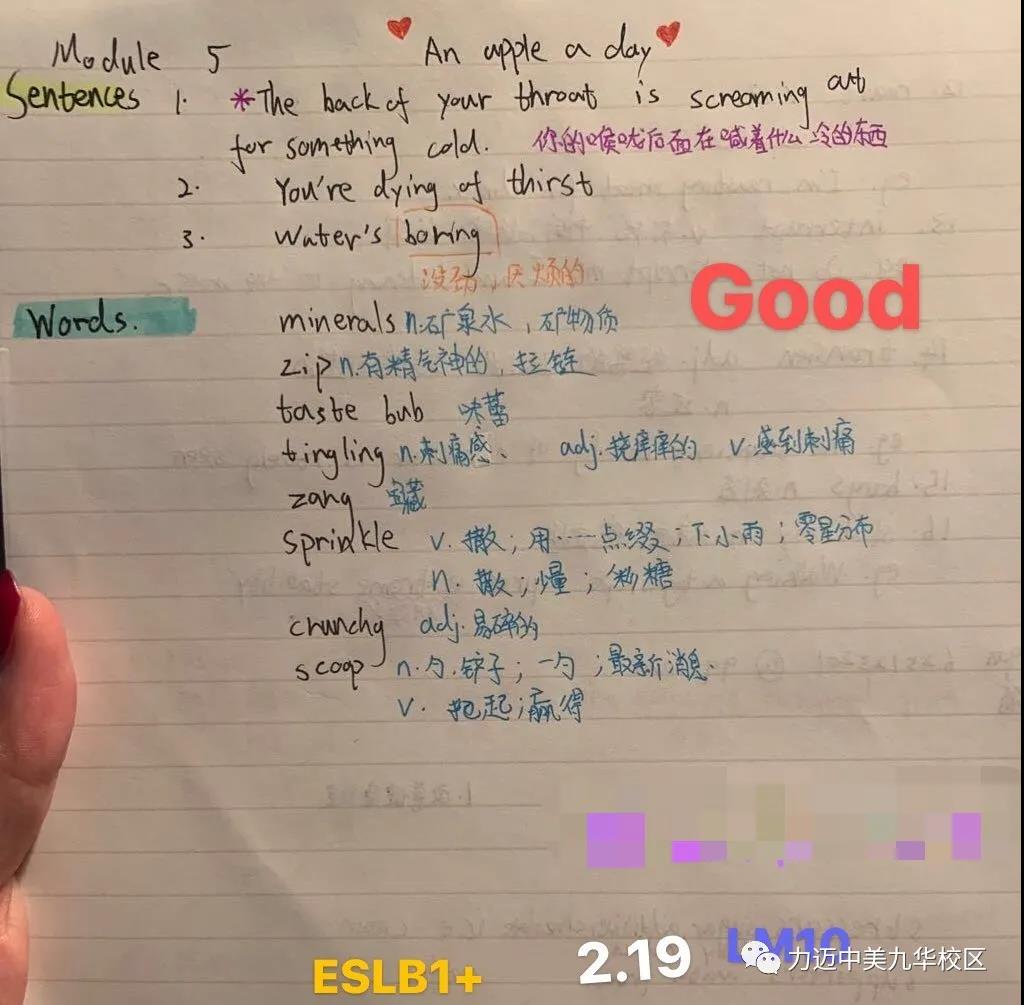 Module 5 An apple a day
Sentences 1. *The back of your throat is screaming out
for something cold. 你的喉咙后面在喊着什么冷的东西
2. You're dying of thirst
3. Water's boring
没劲,厌烦的
Good
Words. minerals n.矿泉水,矿物质
zip n.有精气神的,拉链
taste bub 味蕾
tingling n.刺痛感、 adj.挠痒痒的 v.感到刺痛
zang 宝藏
sprinkle v.撒;用……点缀;下小雨;零星分布
n.撒;少量;粉糖
crunchy adj.易碎的
scoop n.勺.铲子;一勺;最新消息.
v.抱起;赢得
ESLB1+ 2.19 LM10
力迈中美九华校区